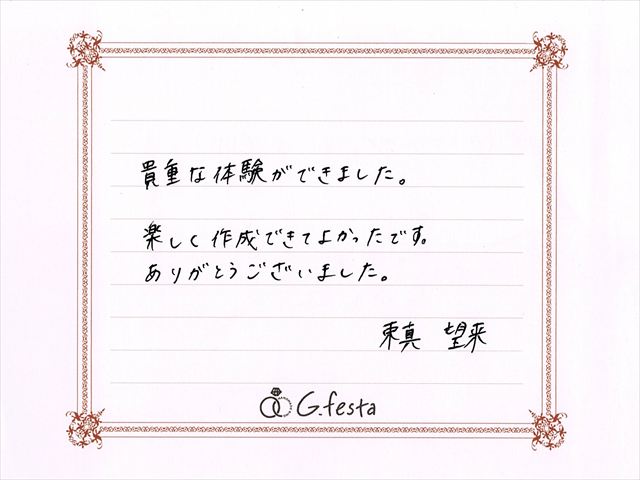 貴重な体験ができました。
楽しく作成できてよかったです。
ありがとうございました。
東真 望来
G.festa